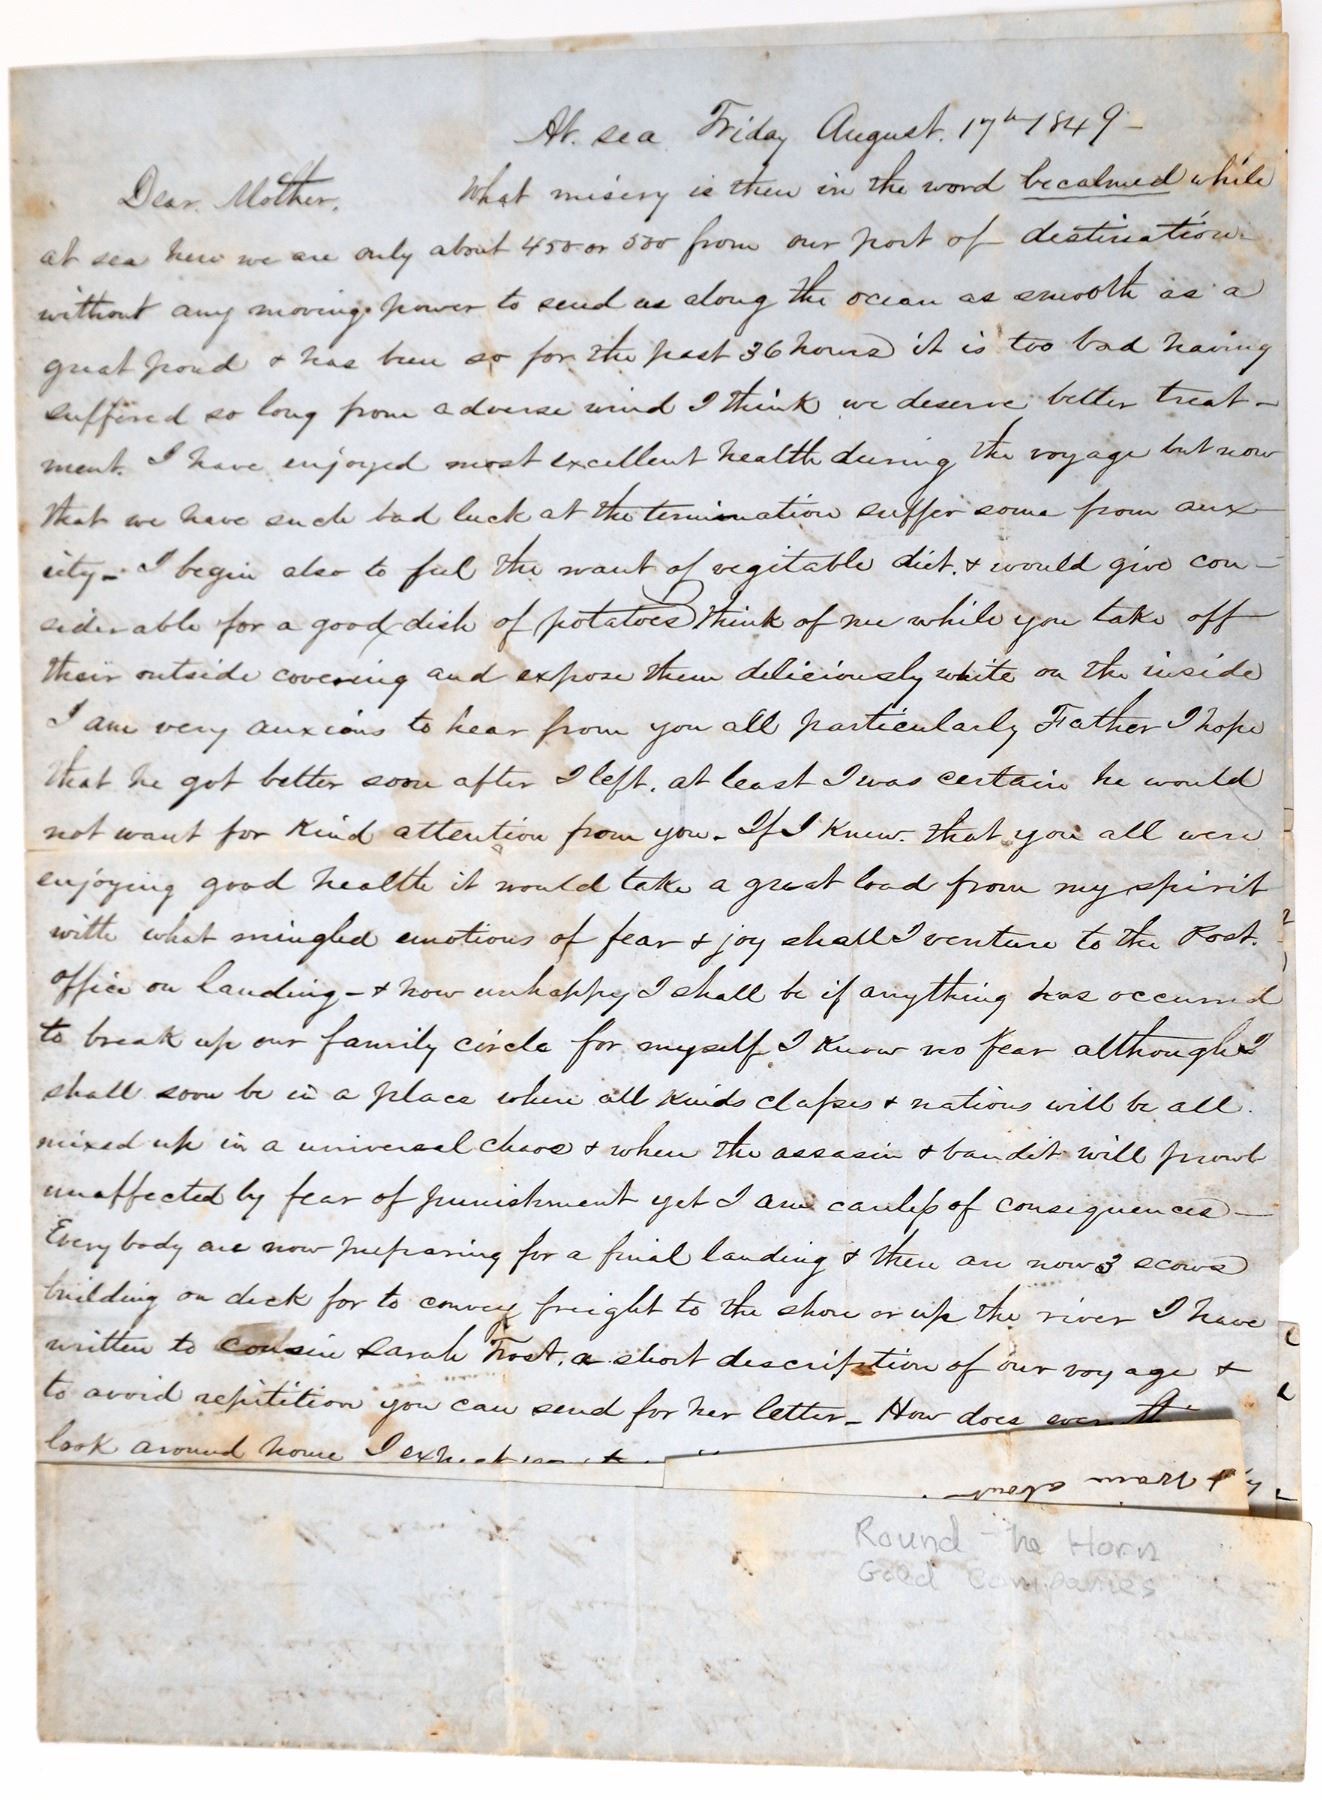 At. sea Friday August. 17th 1849 -
Dear. Mother. What misery is there in the word becalmed while
at sea here we are only about 450 or 500 from our port of destination
without any moving power to send us along the ocean as smooth as a
great pond & has been so for the past 36 hours it is too bad having
suffered so long from adverse wind I think we deserve better treat-
ment. I have enjoyed most excellent health during the voyage but now
that we have such bad luck at the termination suffer some from anx-
iety - I begin also to feel the want of vegitable diet. & would give con-
siderable for a good dish of potatoes think of me while you take off
their outside covering and expose them deliciously white on the inside
I am very anxious to hear from you all particularly Father I hope
that he got better soon after I left. at least I was certain he would
not want for kind attention from you. If I knew. that you all were
enjoying good health it would take a great load from my spirit
with what mingled emotions of fear & joy shall I venture to the Post.
office on landing - & how unhappy I shall be if anything has occurred
to break up our family circle for myself I know no fear although I
shall soon be in a place where all kinds classes & nations will be all
mixed up in a universal chaos & where the assasin & bandit will prowl
unaffected by fear of punishment yet I am careless of consequences -
Every body are now preparing for a final landing & there are now 3 scows
building on deck for to convey freight to the shore or up the river I have
written to cousin Sarah Frost. a short description of our voyage &
to avoid repitition you can send for her letter - How does every th
look around home I expect
& warm about
Round the Horn
Gold Companies